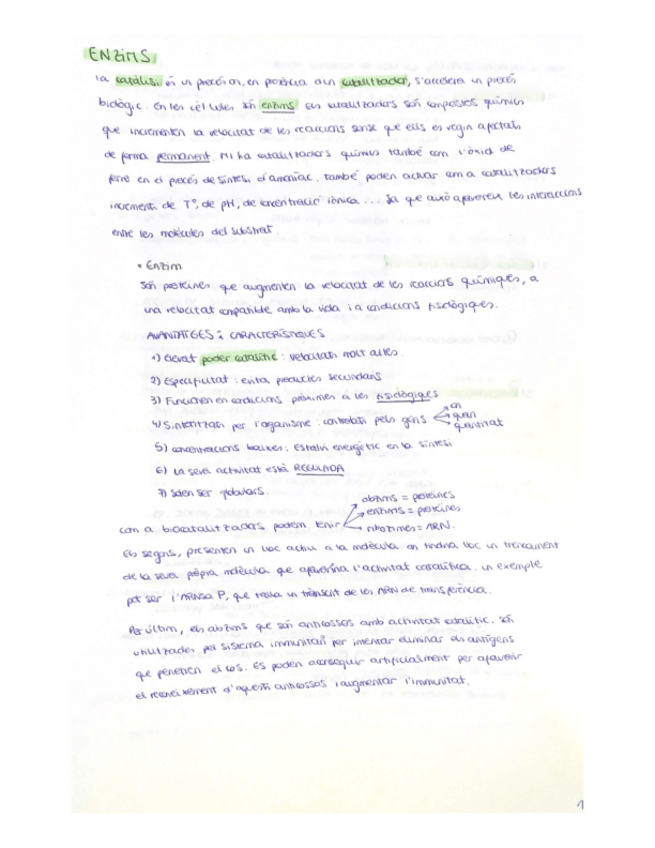 ENZIMS
la catàlisi és un procés on, en presència d'un catalitzador, s'accelera un procés
biològic. En les cèl·lules són enzims els catalitzadors són compostos químics
que incrementen la velocitat de les reaccions sense que ells es vegin afectats
de forma permanent. Hi ha catalitzadors químics també com l'òxid de
ferro en el procés de síntesi d'amoníac. també poden actuar com a catalitzadors
increments de Tº, de pH, de concentració iònica... Ja que això afavoreix les interaccions
entre les molècules del substrat.
• Enzim
Són proteïnes que augmenten la velocitat de les reaccions químiques, a
una velocitat compatible amb la vida i a condicions fisiològiques.
AVANTATGES i CARACTERÍSTIQUES
1) Elevat poder catalític: velocitats molt altes.
2) Especificitat: evita productes secundaris
3) Funcionen en condicions pròximes a les fisiològiques
4) Sintetitzats per l'organisme: controlats pels gens → on
→ quan
→ quantitat
5) concentracions baixes: Estalvi energètic en la síntesi
6) La seva activitat està REGULADA
7) Solen ser globulars.
com a biocatalitzadors podem tenir → abzims = proteïnes
→ enzims = proteïnes
→ ribozimes = ARN.
Els segons, presenten un lloc actiu a la molècula on tindrà lloc un trencament
de la seva pròpia molècula que afavorirà l'activitat catalítica. un exemple
pot ser l'ARNsa P, que talla un trànscrit de les ARN de transferència.
Per últim, els abzims que són anticossos amb activitat catalític. són
utilitzades pel sistema immunitari per intentar eliminar els antígens
que penetren el cos. Es poden aconseguir artificialment per afavorir
el reconeixement d'aquests anticossos i augmentar l'immunitat.
1